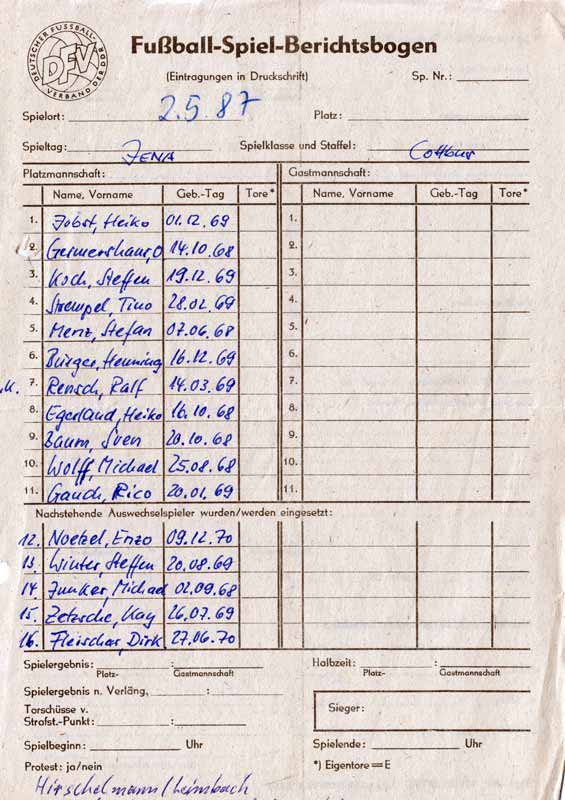 DEUTSCHER FUSSBALL-VERBAND DER DDR
DFV
Fußball-Spiel-Berichtsbogen
(Eintragungen in Druckschrift) Sp. Nr.:
Spielort: 2.5.87 Platz:
Spieltag: JENA Spielklasse und Staffel: Cottbus
Platzmannschaft: Gastmannschaft:
Name, Vorname Geb.-Tag Tore* Name, Vorname Geb.-Tag Tore*
1. Jobst, Heiko 01.12.69 1.
2. Germershaus, O 14.10.68 2.
3. Koch, Steffen 19.12.69 3.
4. Strempel, Tino 28.02.69 4.
5. Menz, Stefan 07.06.68 5.
6. Bürger, Henning 16.12.69 6.
M. 7. Rensch, Ralf 14.03.69 7.
8. Egerland, Heiko 16.10.68 8.
9. Baum, Sven 20.10.68 9.
10. Wolff, Michael 25.08.68 10.
11. Gauch, Rico 20.01.69 11.
Nachstehende Auswechselspieler wurden/werden eingesetzt:
12. Noetzel, Enzo 09.12.70
13. Winter, Steffen 20.08.69
14. Junker, Michael 02.09.68
15. Zetzsche, Kay 26.07.69
16. Fleischer, Dirk 27.06.70
Spielergebnis: : Halbzeit: :
Platz- Gastmannschaft Platz- Gastmannschaft
Spielergebnis n. Verläng, :
Torschüsse v. Sieger:
Strafst.-Punkt: :
Spielbeginn: Uhr Spielende: Uhr
Protest: ja/nein *) Eigentore = E
Hirschelmann / Leimbach